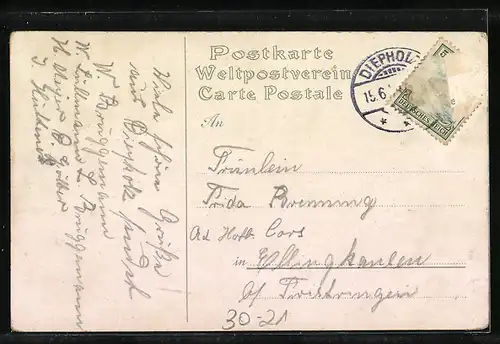 Postkarte
Weltpostverein
Carte Postale
DIEPHOL
15.6
5
DEUTSCHES REICH
An
Fräulein
Frida Brenning
Ad Hoth Cors
in Ellinghausen
b/ Twistringen
30-21
Viele schöne Grüße
aus Diepholz sendet
W. Brüggemann
W. L. Brüggemann
H. Meyer